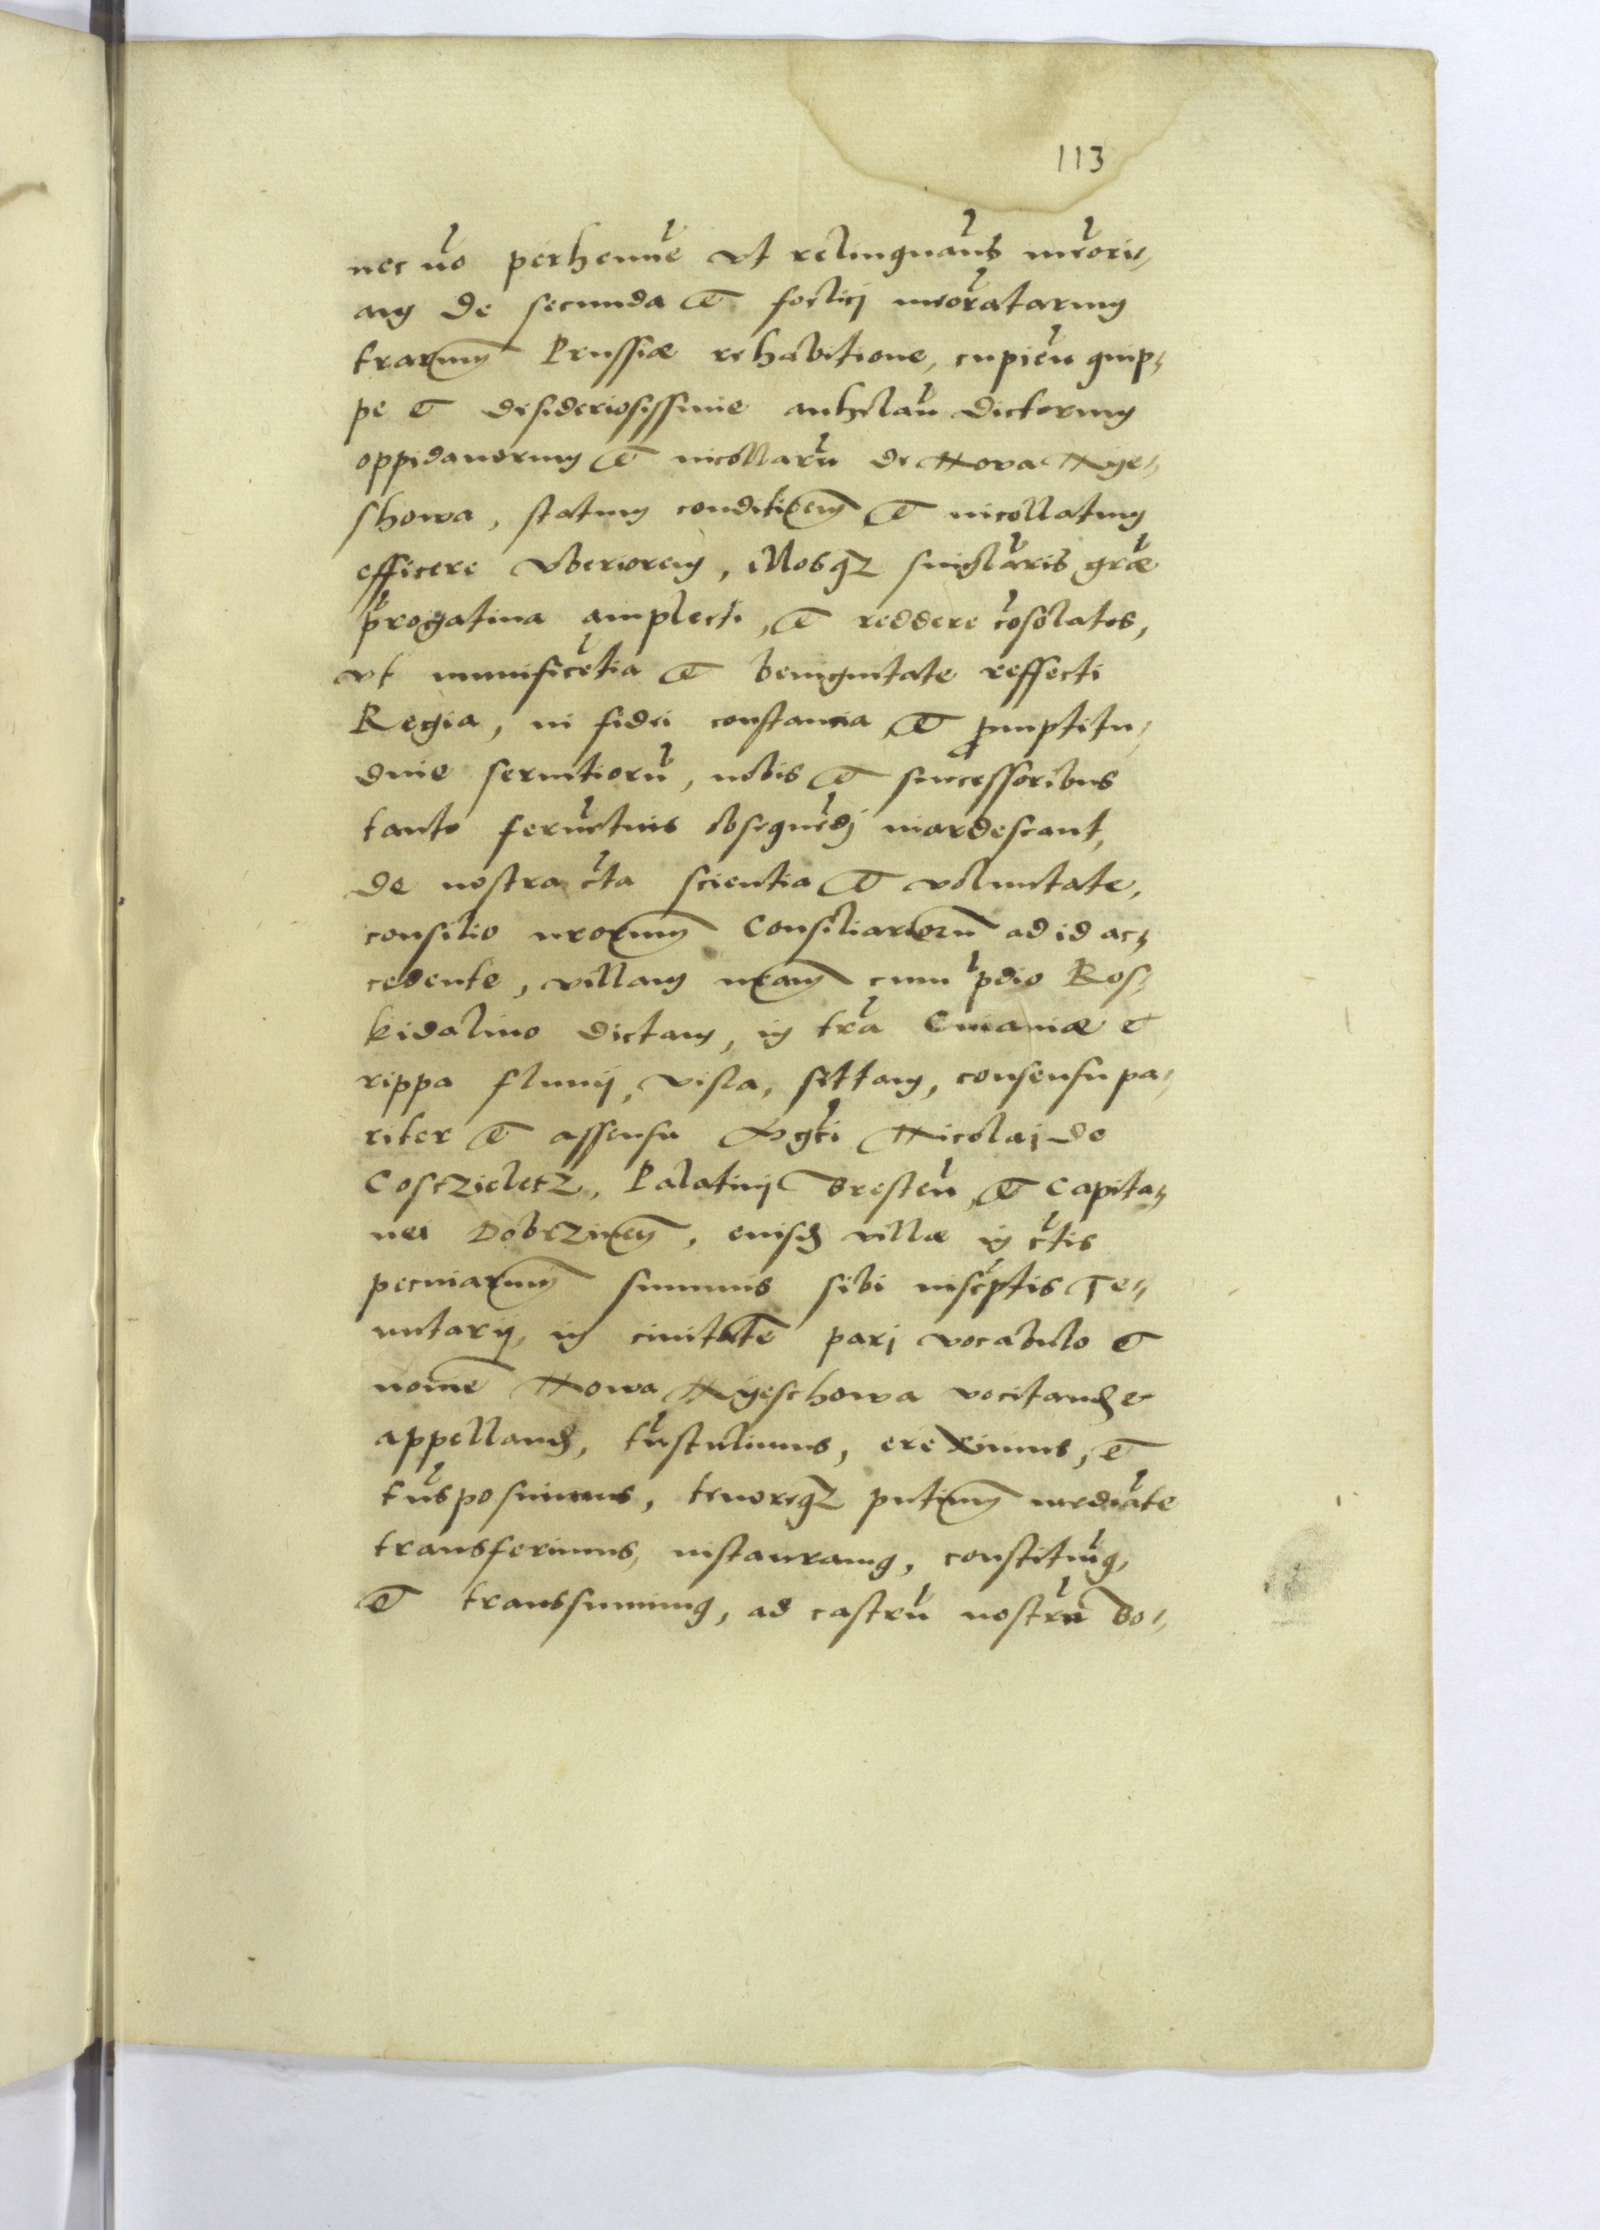 113
nec uo perhenne vt relinquaus meori„
am de secunda et foelicj meoratarum
trarum Prussiae rehabitione, cupien quip„
pe et desideriosissime anhelan dictorum
oppidanorum et incollaru de Nova Nye„
showa, statum conditionem et incollatum
efficere vberiorem, Illosqz singlaris grae
progatiua amplecti, et reddere cosolatos,
vt munificetia et benignitate reffecti
Regia, in fidei constancia et promptitu„
dine seruitioru, nobis et successoribus
tanto feruetius obsequedj inardescant,
de nostra cta scientia et voluntate,
consilio nrorum Consiliariorum ad id ac„
cedente, villam nram cum pdio Ros„
kidalino dictam, in tra Cuiauiae et
rippa fluuij, Visla, sittam, consensu pa„
riter et assensu Mgci Nicolaj de
Cosczieletz, Palatinj Bresten, et Capita„
nei Dobrzinen, eiusd villae in ctis
pecuniarum summis sibi inscptis Te„
nutarij, in ciuitate parj vocabulo et
nomine Nowa Nyeschowa vocitand et
appelland, tustulimus, ereximus, et
tusposuimus, tenoreqz pntium mediate
transferimus, instauramus, constituimus,
et transsumimus, ad castru nostru Bo„